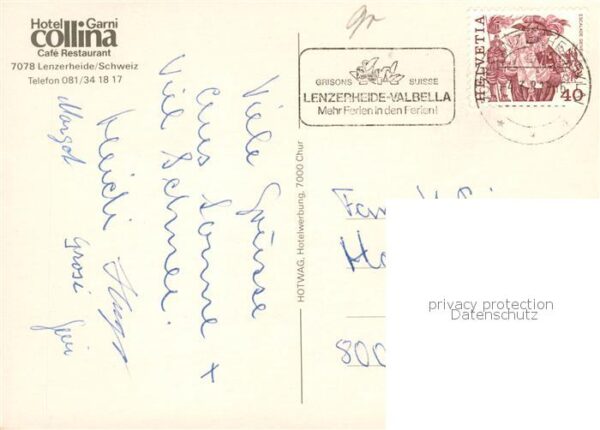 Hotel Garni
collina
Café Restaurant
7078 Lenzerheide/Schweiz
Telefon 081/34 18 17
Viele Grüsse
aus Sonne +
viel Schnee.
Heidi
Margot
Grosi
HOTWAG, Hotelwerbung, 7000 Chur
GRISONS SUISSE
LENZERHEIDE-VALBELLA
Mehr Ferien in den Ferien!
HELVETIA
40
Fam.
800
privacy protection
Datenschutz